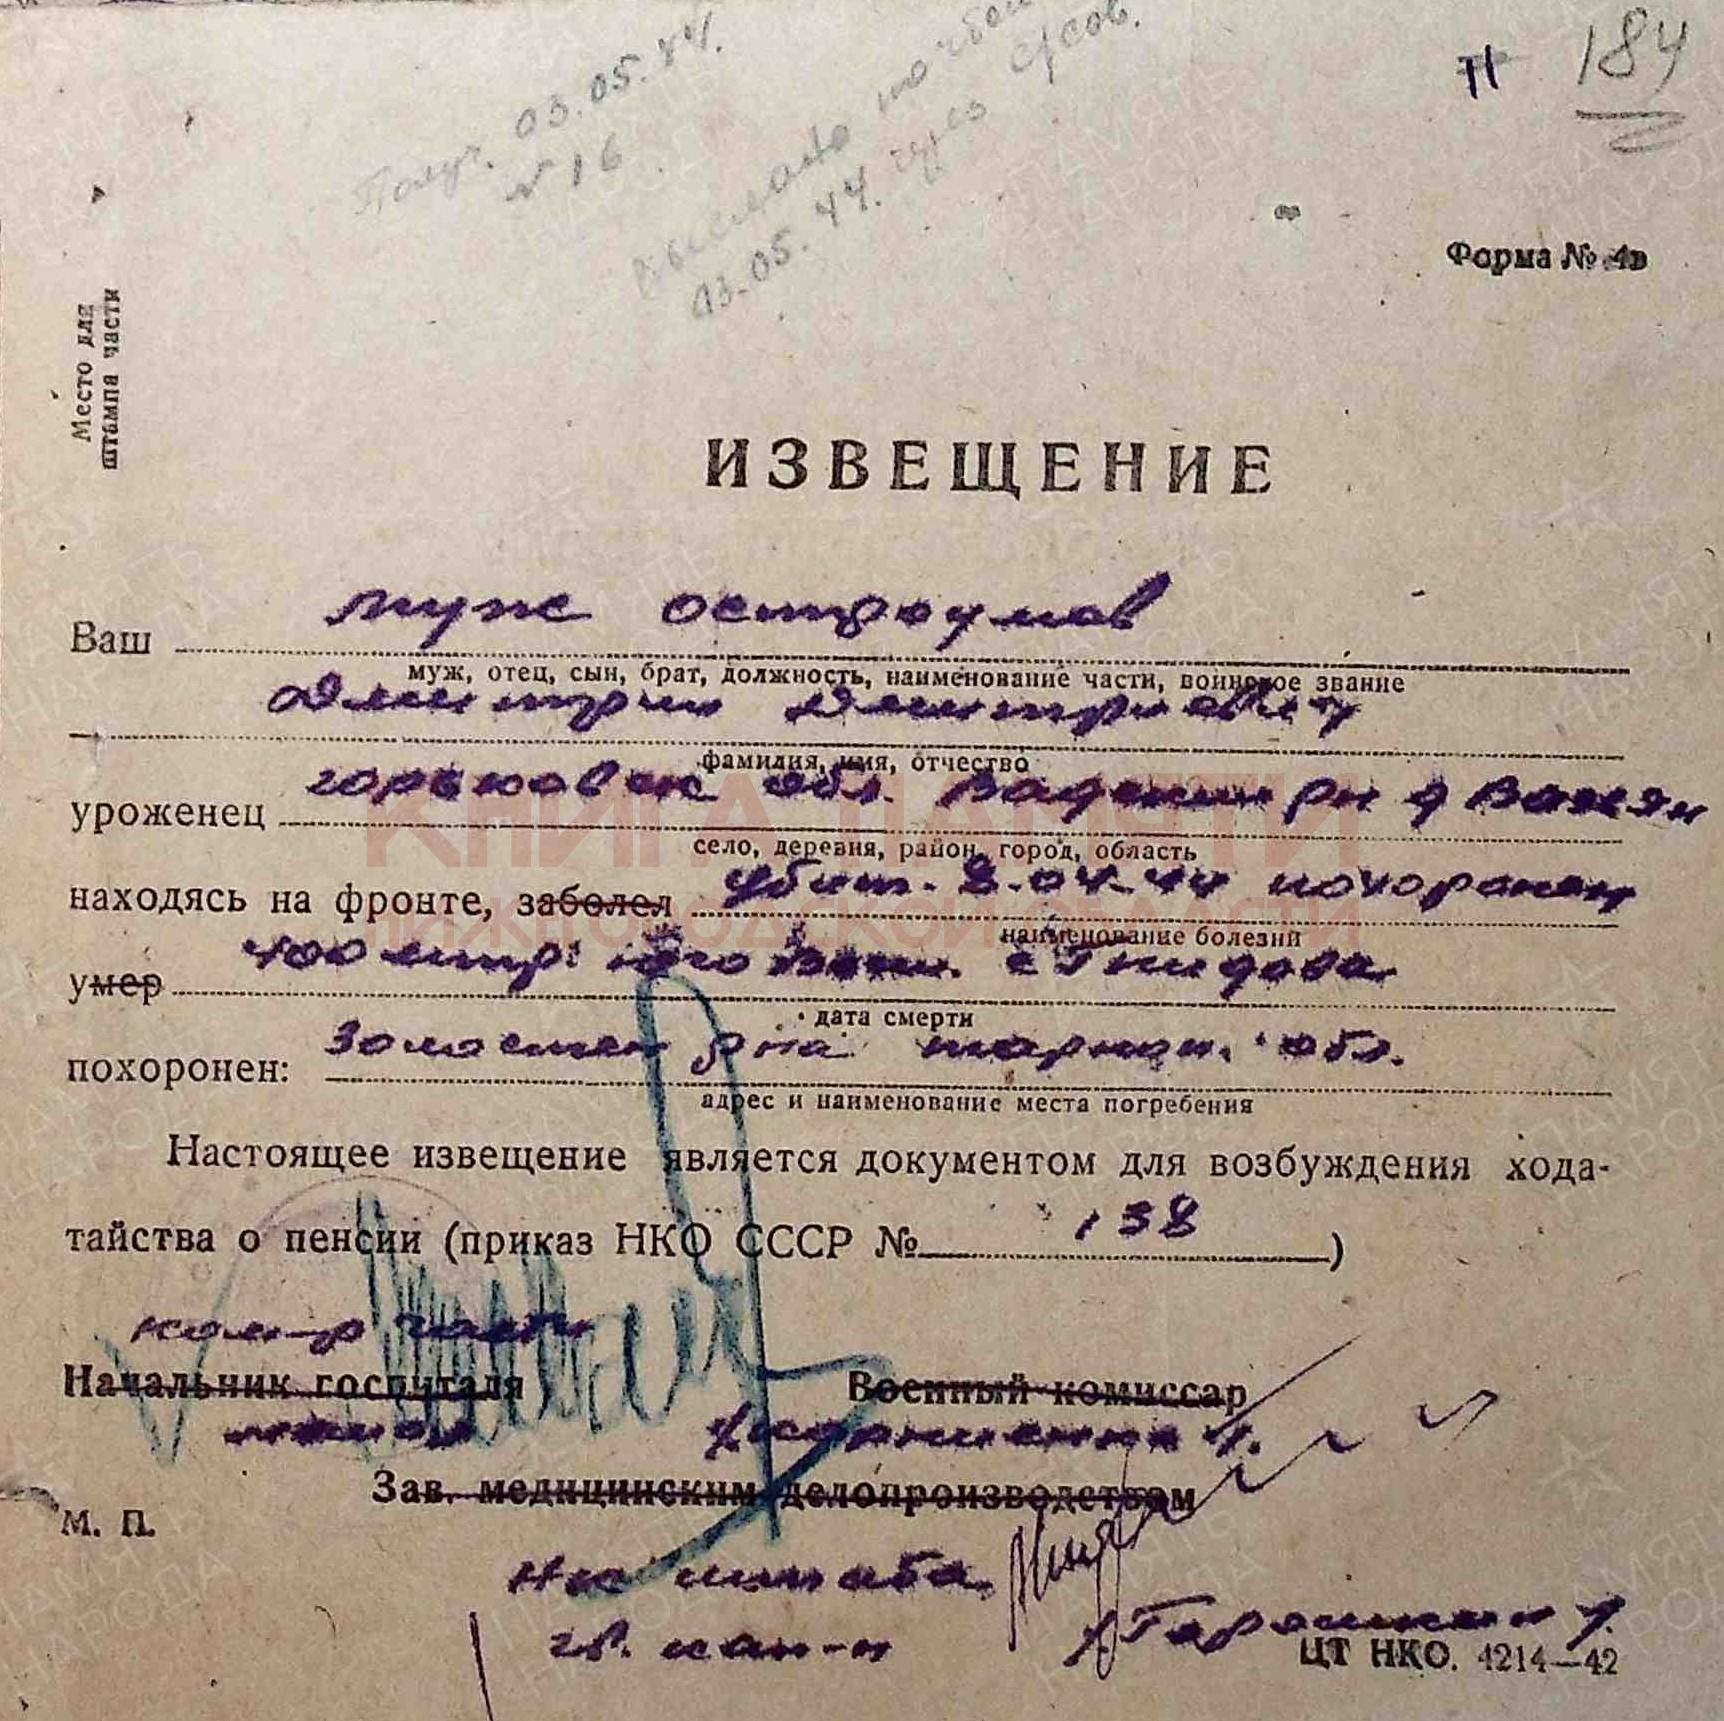 184
Получ. 03.05.44.
№ 16
Выслано
03.05.44. через с/сов.
Форма № 4в
Место для
штампа части
ИЗВЕЩЕНИЕ
Ваш муж Остроумов
муж, отец, сын, брат, должность, наименование части, воинское звание
Дмитрий Дмитриевич
фамилия, имя, отчество
уроженец Горьковск обл. Вадский рн д
село, деревня, район, город, область
находясь на фронте, заболел убит. 8.04.44 похоронен
наименование болезни
умер 400 мтр. с Гнидова
дата смерти
похоронен: рна обл.
адрес и наименование места погребения
Настоящее извещение является документом для возбуждения хода-
тайства о пенсии (приказ НКО СССР № 138)
ком-р части
Начальник госпиталя Военный комиссар
Зав. медицинским делопроизводством
М. П.
Нач штаба
гв. кап-н /Гарошкин/.
ЦТ НКО. 4214—42
КНИГА ПАМЯТИ
НИЖЕГОРОДСКОЙ ОБЛАСТИ